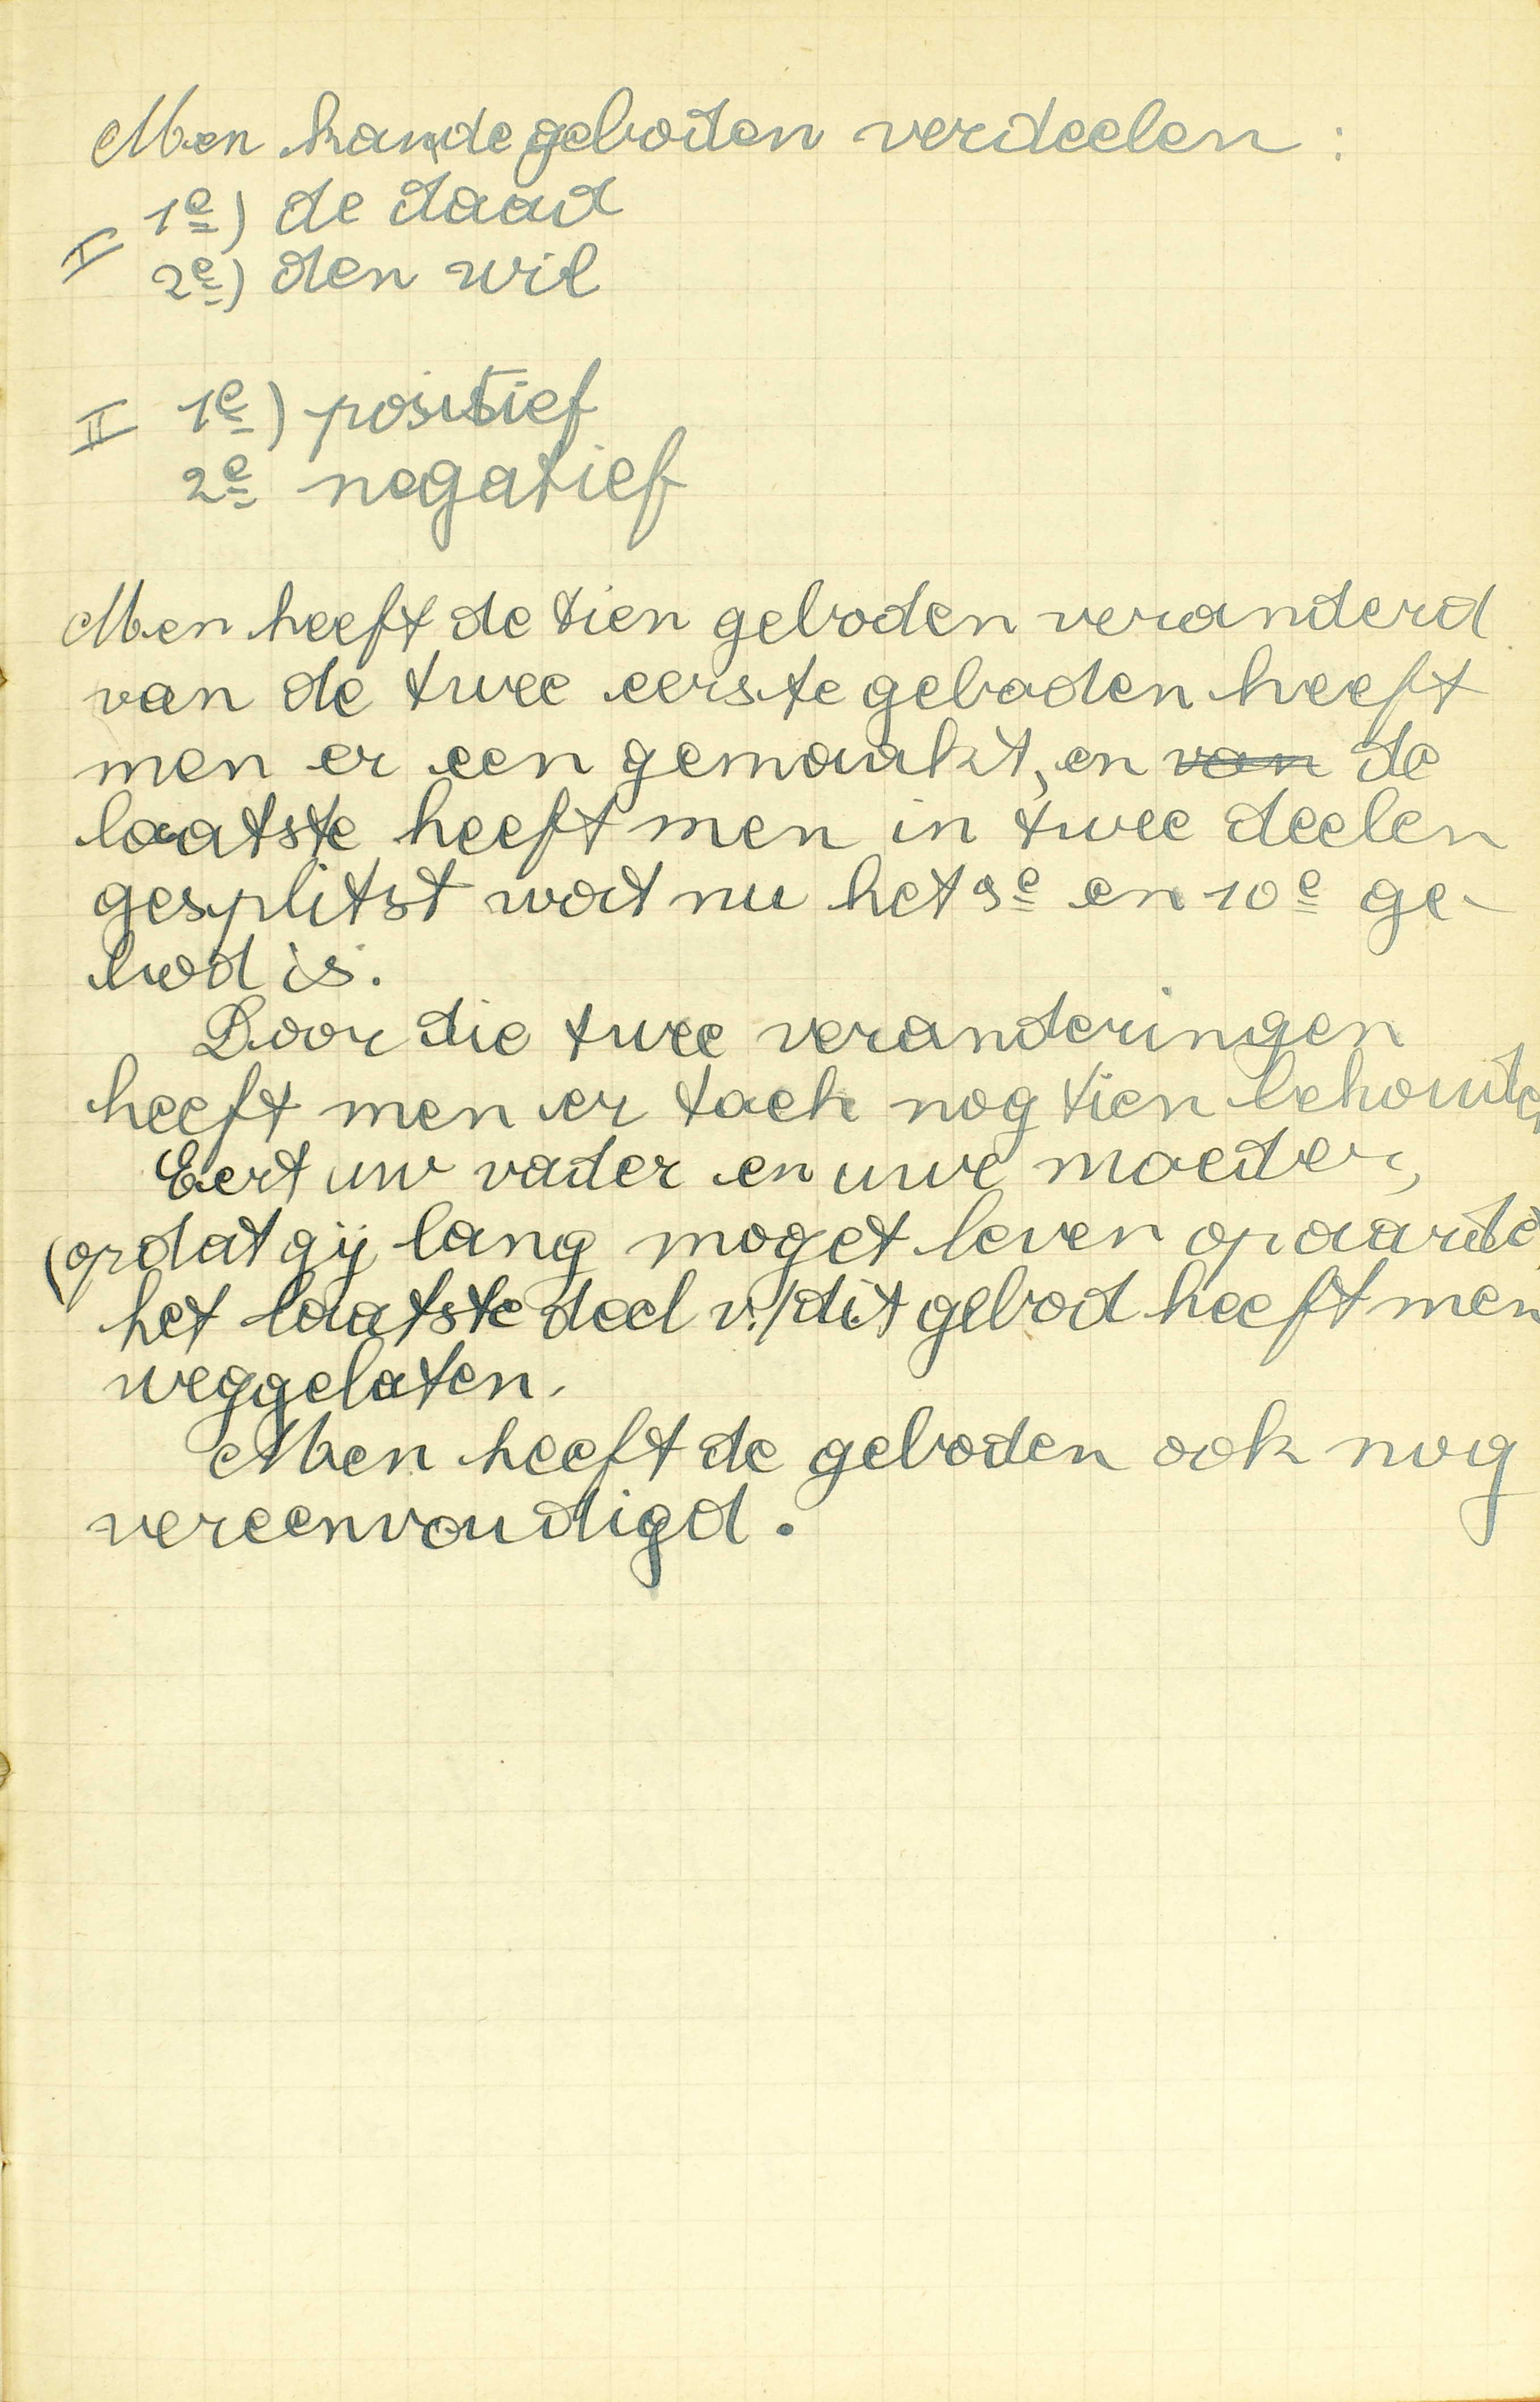 Men kan de geboden verdeelen :
1e) de daad
I
2e) den wil
II 1e) positief
2e negatief
Men heeft de tien geboden veranderd
van de twee eerste geboden heeft
men er een gemaakt, en van de
laatste heeft men in twee deelen
gesplitst wat nu het 9e en 10e ge-
bod is.
Door die twee veranderingen
heeft men er toch nog tien behouden
Eert uw vader en uwe moeder,
(opdat gij lang moget leven op aarde)
het laatste deel v./dit gebod heeft men
weggelaten.
Men heeft de geboden ook nog
vereenvoudigd.